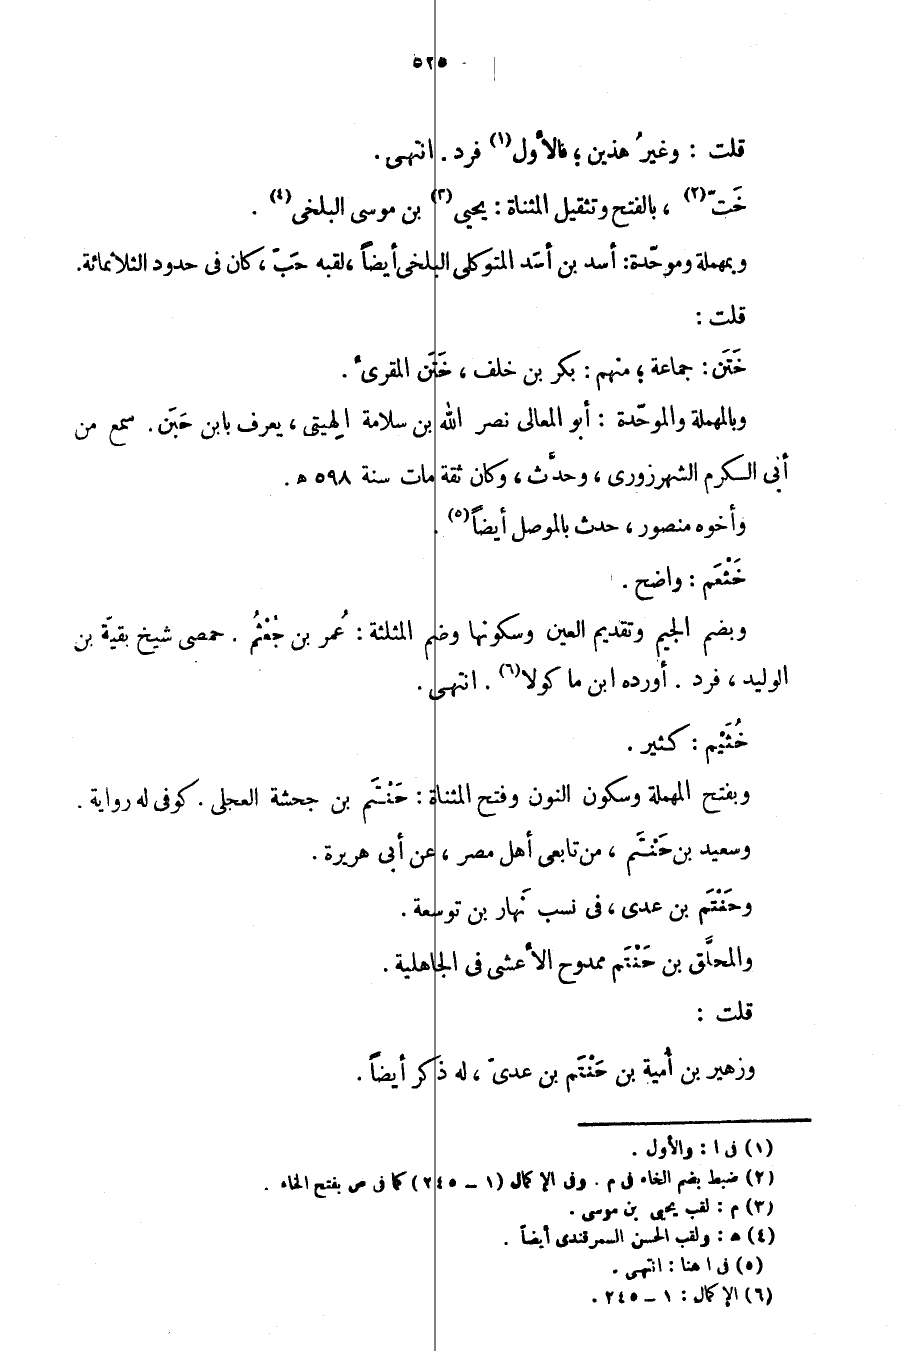 ٥٢٥ -
قلت : وغيرُ هذين ؛ فالأول(١) فرد . انتهى .
خَتّ(٢) ، بالفتح وتثقيل المثناة : يحيى(٣) بن موسى البلخى(٤) .
وبمهملة وموحّدة: أسد بن أسَد المتوكلى البلخى أيضاً ،لقبه حَبّ ،كان فى حدود الثلاثمائة.
قلت :
خَتَن: جماعة ؛ منهم : بكر بن خلف ، خَتَن المقرئ .
وبالمهملة والموحّدة : أبو المعالى نصر الله بن سلامة الهيتى ، يعرف بابن حَبَن . سمع من
أبى الكرم الشهرزورى ، وحدَّث ، وكان ثقة مات سنة ٥٩٨ ه .
وأخوه منصور ، حدث بالموصل أيضاً(٥) .
خَثْعَم : واضح .
وبضم الجيم وتقديم العين وسكونها وضم المثلثة : عُمر بن جُعْثُم . حمصى شيخ بقيّة بن
الوليد ، فرد . أورده ابن ما كولا(٦) . انتهى .
خُثَيْم : كثير .
وبفتح المهملة وسكون النون وفتح المثناة : حَنْتَم بن جحشة العجلى . كوفى له رواية .
وسعيد بن حَنْتَم ، من تابعى أهل مصر ، عن أبى هريرة .
وحَنْتَم بن عدى ، فى نسب نَهار بن توسعة .
والمحلَّق بن حَنْتَم ممدوح الأعشى فى الجاهلية .
قلت :
وزهير بن أُمية بن حَنْتَم بن عدىّ ، له ذكر أيضاً .
(١) فى ا : والأول .
(٢) ضبط بضم الخاء فى م . وفى الإكمال (١ – ٢٤٥) كما فى ص بفتح الخاء .
(٣) م : لقب يحيى بن موسى .
(٤) ه : ولقب الحسن السمرقندى أيضاً .
(٥) فى ا هنا : انتهى .
(٦) الإكمال : ١ – ٢٤٥ .